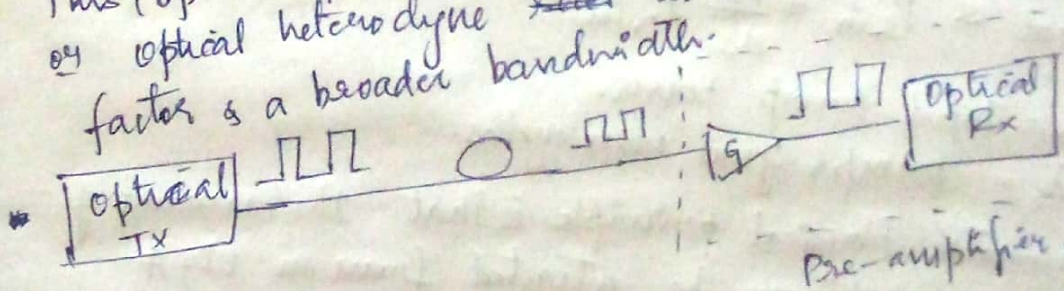 or optical heterodyne
factor & a broader bandwidth.
Optical
Tx
G
Optical
Rx
Pre-amplifier